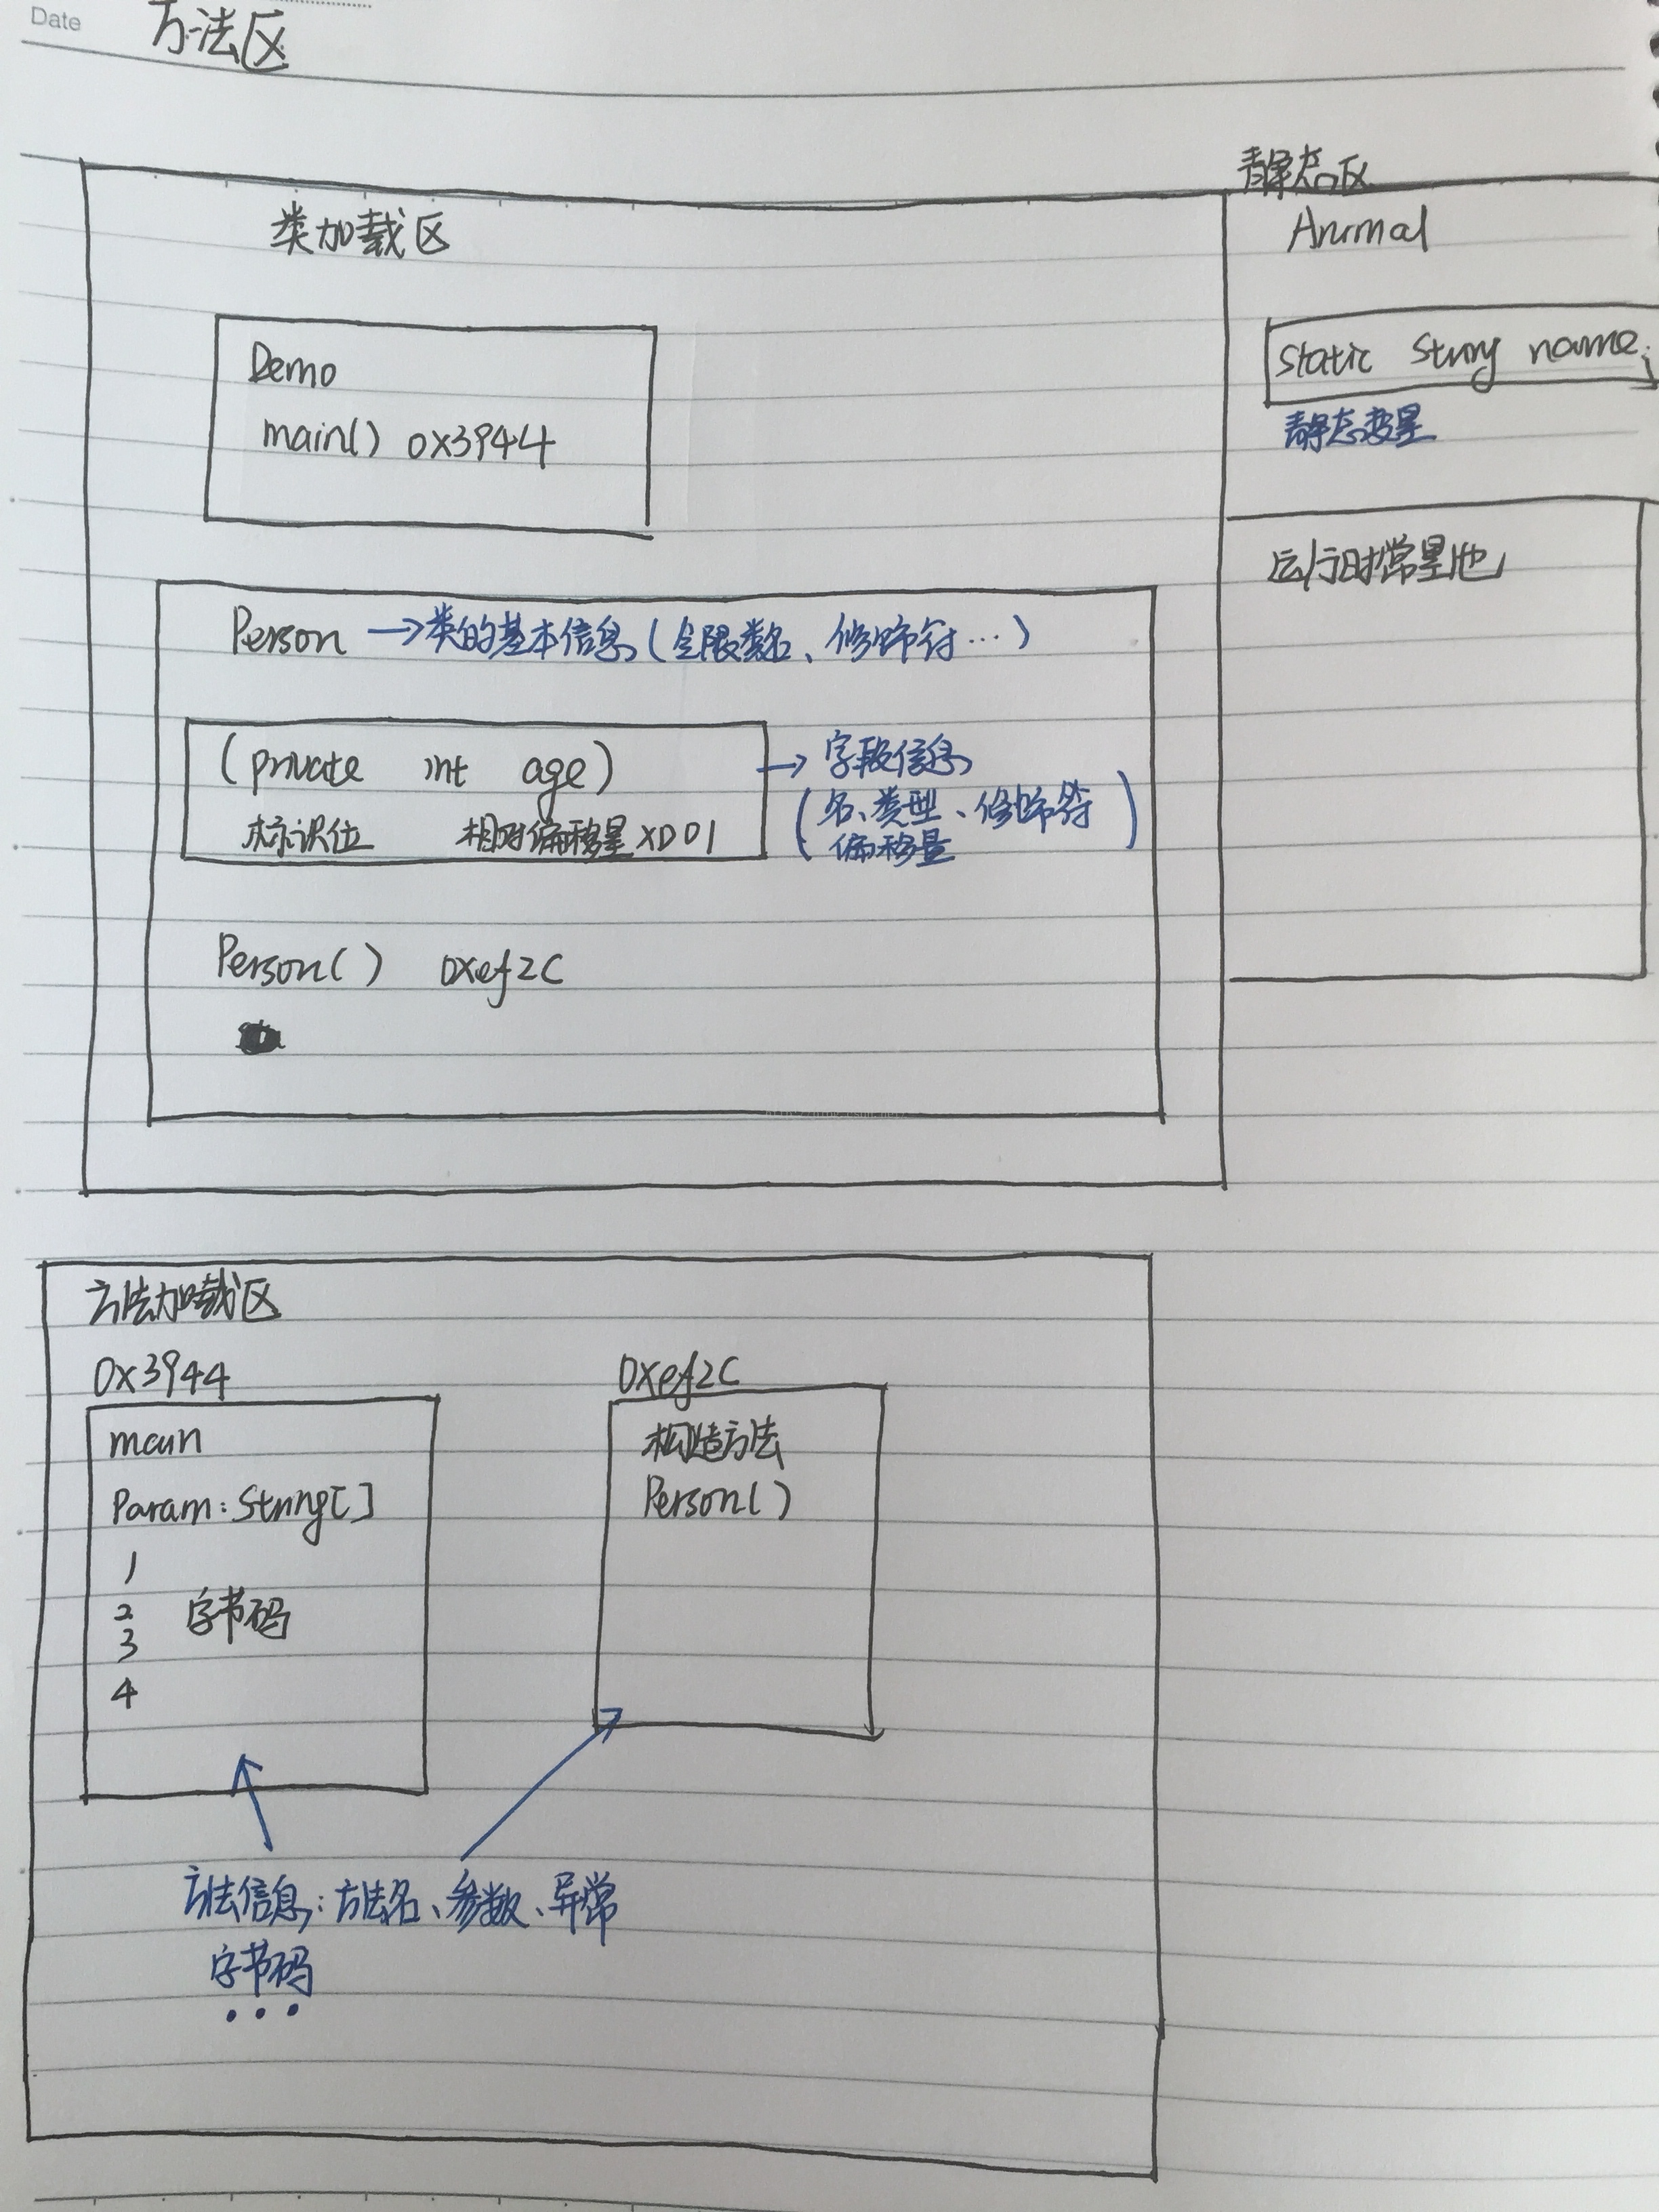 Date
方法区
静态区
类加载区
Animal
Demo
main() 0x3944
static String name;
静态变量
运行时常量池
Person →类的基本信息(全限类名、修饰符…)
(private int age)
标识位 相对偏移量XD01
→ 字段信息
(名、类型、修饰符
偏移量)
Person() 0xef2C
方法加载区
0x3944
0xef2C
main
Param: String[]
1
2
3
4
字节码
构造方法
Person()
方法信息:方法名、参数、异常
字节码
...